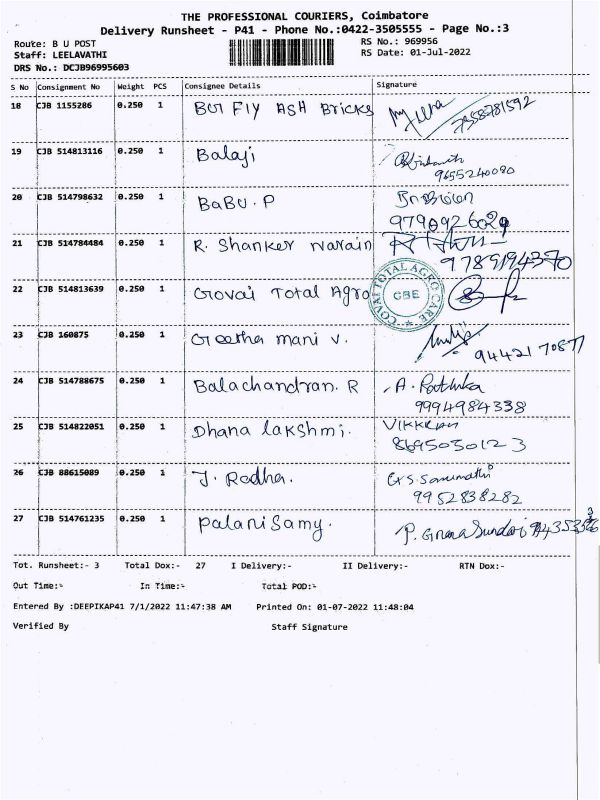 THE PROFESSIONAL COURIERS, Coimbatore
Delivery Runsheet - P41 - Phone No.:0422-3505555 - Page No.:3
Route: B U POST
RS No.: 969956
Staff: LEELAVATHI
RS Date: 01-Jul-2022
DRS No.: DCJB96995603
S No Consignment No Weight PCS Consignee Details Signature
18 CJB 1155286 0.250 1 BUT FLY ASH BRICKS 7358781592
19 CJB 514813116 0.250 1 Balaji
9655240090
20 CJB 514798632 0.250 1 BaBU.P
9790926029
21 CJB 514784484 0.250 1 R. Shanker Narain
9789194370
22 CJB 514813639 0.250 1 Covai Total Agro
COVAI TOTAL AGRO CARE
CBE
23 CJB 160875 0.250 1 Geetha mani v.
9442170877
24 CJB 514788675 0.250 1 Balachandran. R A. Rathika
9994984338
25 CJB 514822051 0.250 1 Dhana lakshmi.
8695030123
26 CJB 88615089 0.250 1 J. Radha.
9952838282
27 CJB 514761235 0.250 1 Palanisamy. P. Gnana Sundari
Tot. Runsheet:- 3 Total Dox:- 27 I Delivery:- II Delivery:- RTN Dox:-
Out Time:- In Time:- Total POD:-
Entered By :DEEPIKAP41 7/1/2022 11:47:38 AM Printed On: 01-07-2022 11:48:04
Verified By Staff Signature